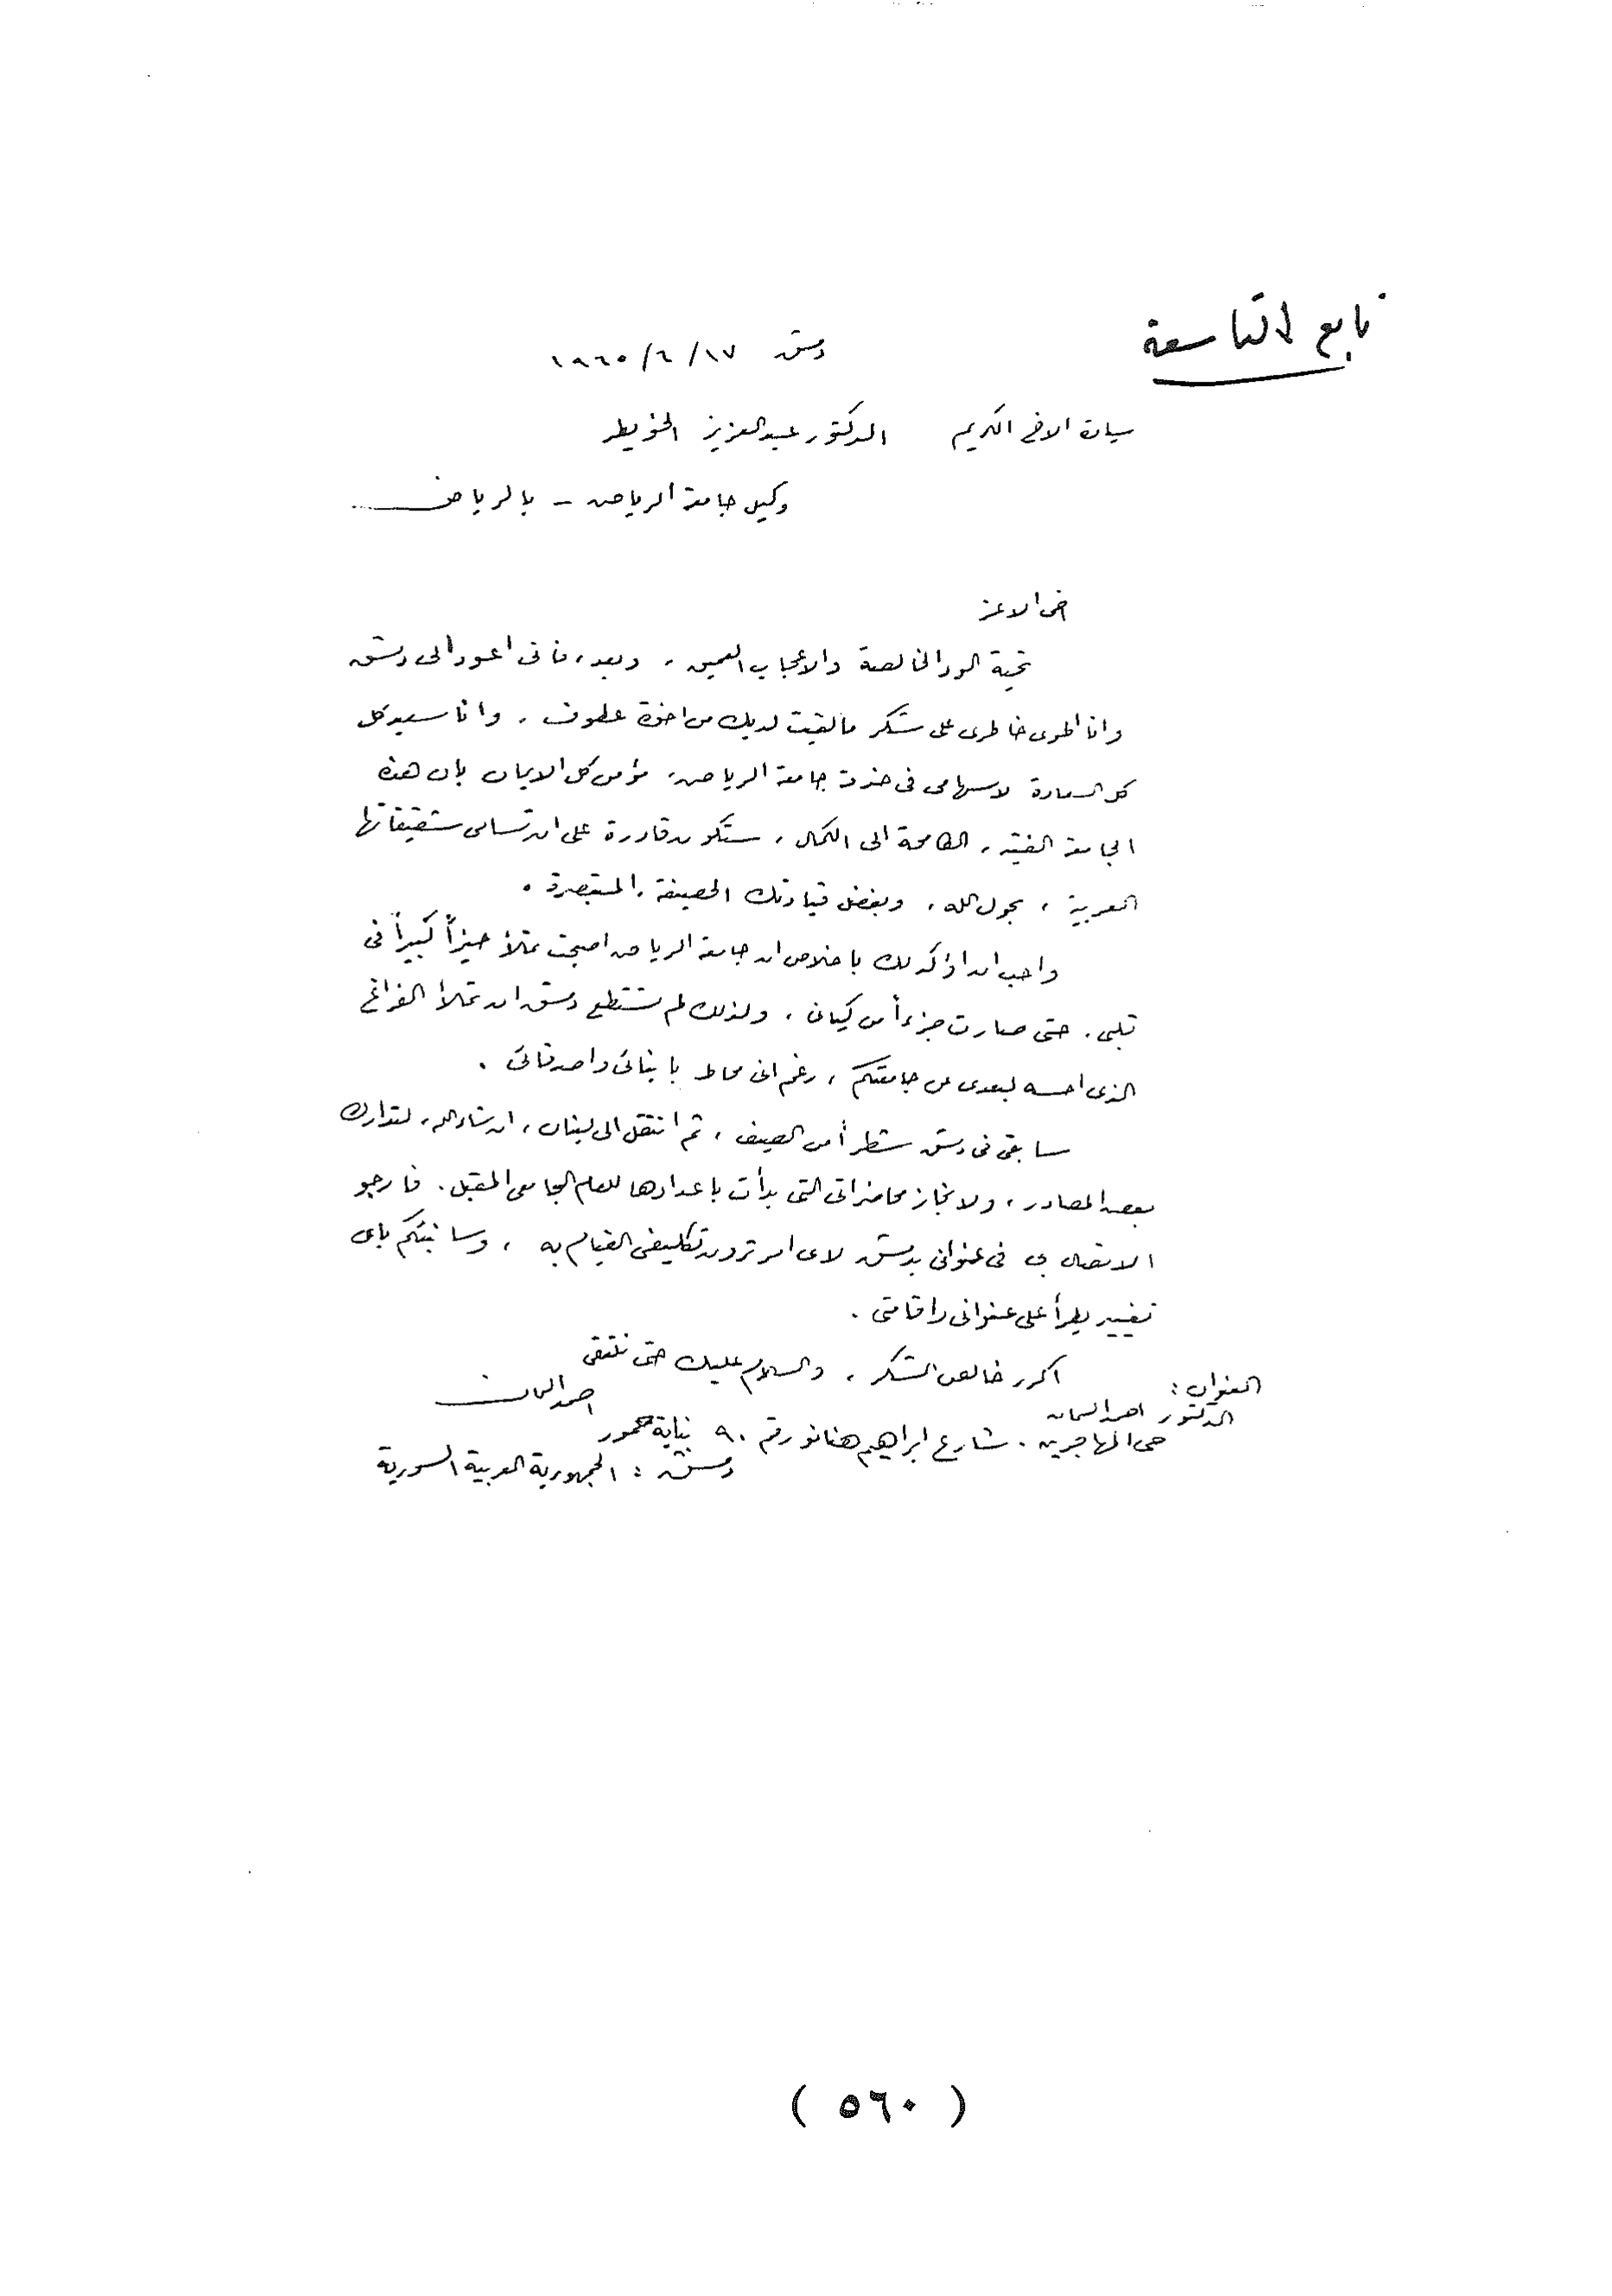 تابع لـ التاسعة
دمشق ١٧/٦/١٩٦٥
سيادة الاخ الكريم الدكتور عبدالعزيز الخويطر
وكيل جامعة الرياض - بالرياض
اخي الاعز
تحية الود الخالصة والاعجاب العميق، وبعد، فاني اعود الى دمشق
وانا اطوي خاطري على شكر ما لقيت لديك من اخوة عطوف، وانا سعيد كل
كل السعادة لاسهامي في خدمة جامعة الرياض، مؤمن كل الايمان بان هذه
الجامعة الفتية، الطامحة الى الكمال، ستكون قادرة على ان تسامى شقيقاتها
العربية، بحول الله، وبفضل قيادتك الحصيفة المستبصرة.
واحب ان اؤكد لك باخلاص ان جامعة الرياض اصبحت تملأ حيزاً كبيراً في
قلبي. حتى صارت جزءاً من كياني، ولذلك لم تستطع دمشق ان تملأ الفراغ
الذي احسه لبعدي عن جامعتكم، رغم اني محاط بابنائي واصدقائي.
سابقى في دمشق شطراً من الصيف، ثم انتقل الى لبنان، ان شاء الله، لتدارك
بعض المصادر، ولانجاز محاضراتي التي بدأت باعدادها للعام الجامعي المقبل. فارجو
الاتصال بي في عنواني بدمشق لاي امر ترون تكليفي القيام به، وسانبئكم باي
تغيير يطرأ على عنواني واقامتي.
اكرر خالص الشكر، والسلام عليك حتى نلتقي
احمد السمان
العنوان:
الدكتور احمد السمان
حي المهاجرين. شارع ابراهيم هنانو رقم ٩٠ بناية
دمشق: الجمهورية العربية السورية
( ٥٦٠ )